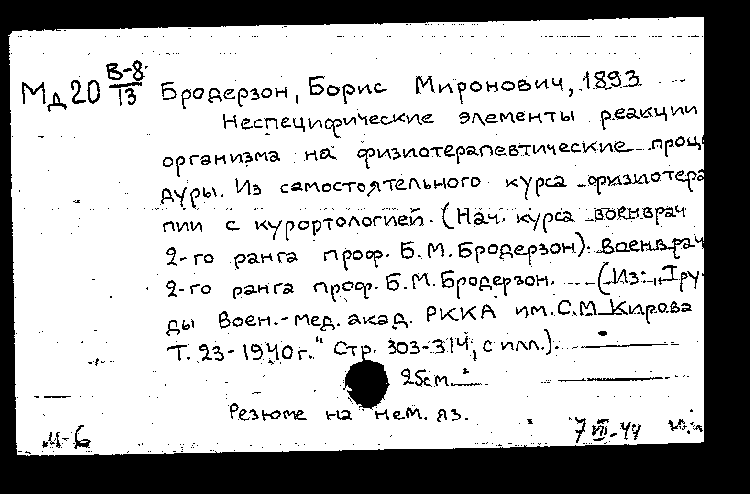 Мд20 В-8/13 Бродерзон, Борис Миронович, 1893
Неспецифические элементы реакции
организма на физиотерапевтические проце
дуры. Из самостоятельного курса физиотера
пии с курортологией. (Нач. курса военврач
2-го ранга проф. Б.М.Бродерзон). Военврач
2-го ранга проф. Б.М.Бродерзон. (Из: „Тру-
ды Воен.-мед. акад. РККА им. С.М Кирова
Т. 23-1940г." Стр. 303-314, с илл.).
25см.
Резюме на нем. яз.
М-6 7 VII-44